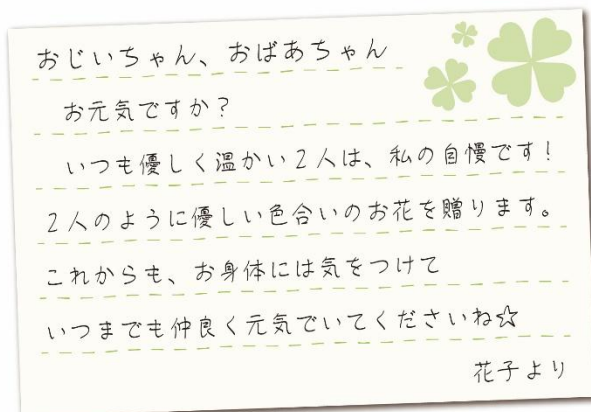 おじいちゃん、おばあちゃん
お元気ですか?
いつも優しく温かい2人は、私の自慢です!
2人のように優しい色合いのお花を贈ります。
これからも、お身体には気をつけて
いつまでも仲良く元気でいてくださいね☆
花子より